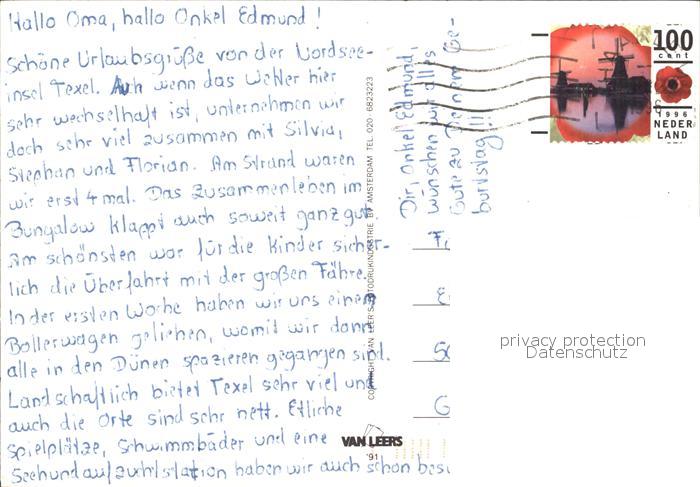 Hallo Oma, hallo Onkel Edmund!
Schöne Urlaubsgrüße von der Nordsee-
insel Texel. Auch wenn das Wetter hier
sehr wechselhaft ist, unternehmen wir
doch sehr viel zusammen mit Silvia,
Stephan und Florian. Am Strand waren
wir erst 4 mal. Das Zusammenleben im
Bungalow klappt auch soweit ganz gut.
Am schönsten war für die Kinder sicher-
lich die Überfahrt mit der großen Fähre.
In der ersten Woche haben wir uns einem
Bollerwagen geliehen, womit wir dann
alle in den Dünen spazieren gegangen sind.
Landschaftlich bietet Texel sehr viel und
auch die Orte sind sehr nett. Etliche
Spielplätze, Schwimmbäder und eine
Seehundaufzuchtstation haben wir auch schon besi
Dir, Onkel Edmund,
wünschen wir alles
Gute zu Deinem Ge-
burtstag!!!
COPYRIGHT VAN LEER'S FOTODRUKINDUSTRIE BV AMSTERDAM TEL. 020 - 6823223
VAN LEERS
'91
100
cent
1996
NEDER
LAND
F
E
G
privacy protection
Datenschutz